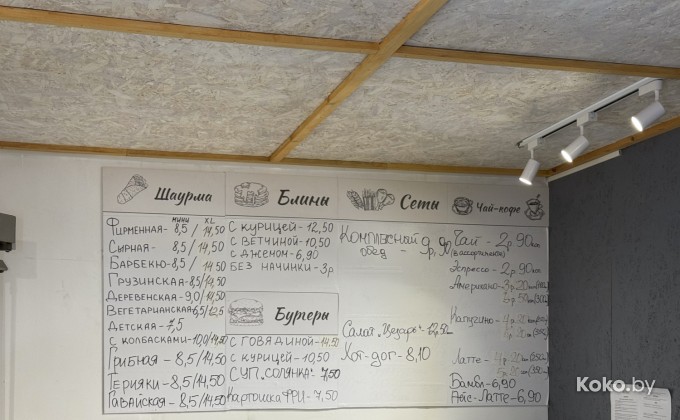 Шаурма
мини XL
Фирменная - 8,5 / 14,50
Сырная - 8,5 / 14,50
Барбекю - 8,5 / 14,50
Грузинская - 8,5 / 14,50
Деревенская - 9,0 / 14,50
Вегетарианская - 6,5 / 12,5
Детская - 7,5
с колбасками - 10,0 / 14,50
Грибная - 8,5 / 14,50
Терияки - 8,5 / 14,50
Гавайская - 8,5 / 14,50
Блины
с курицей - 12,50
с ветчиной - 10,50
с джемом - 6,90
без начинки - 3р
Бургеры
с говядиной - 14,50
с курицей - 10,50
Суп "солянка" 7,50
Картошка фри - 7,50
Сеты
Комплексный
обед -
Салат "Цезарь" - 12,50
Хот-дог - 8,10
Чай-кофе
Чай - 2р. 90коп
(в ассортименте)
Эспрессо - 2р. 90коп
Американо - 3р. 20
Капучино - 4р. 20
Латте - 4р. 20
Бамбл - 6,90
Айс-Латте - 6,90
Koko.by